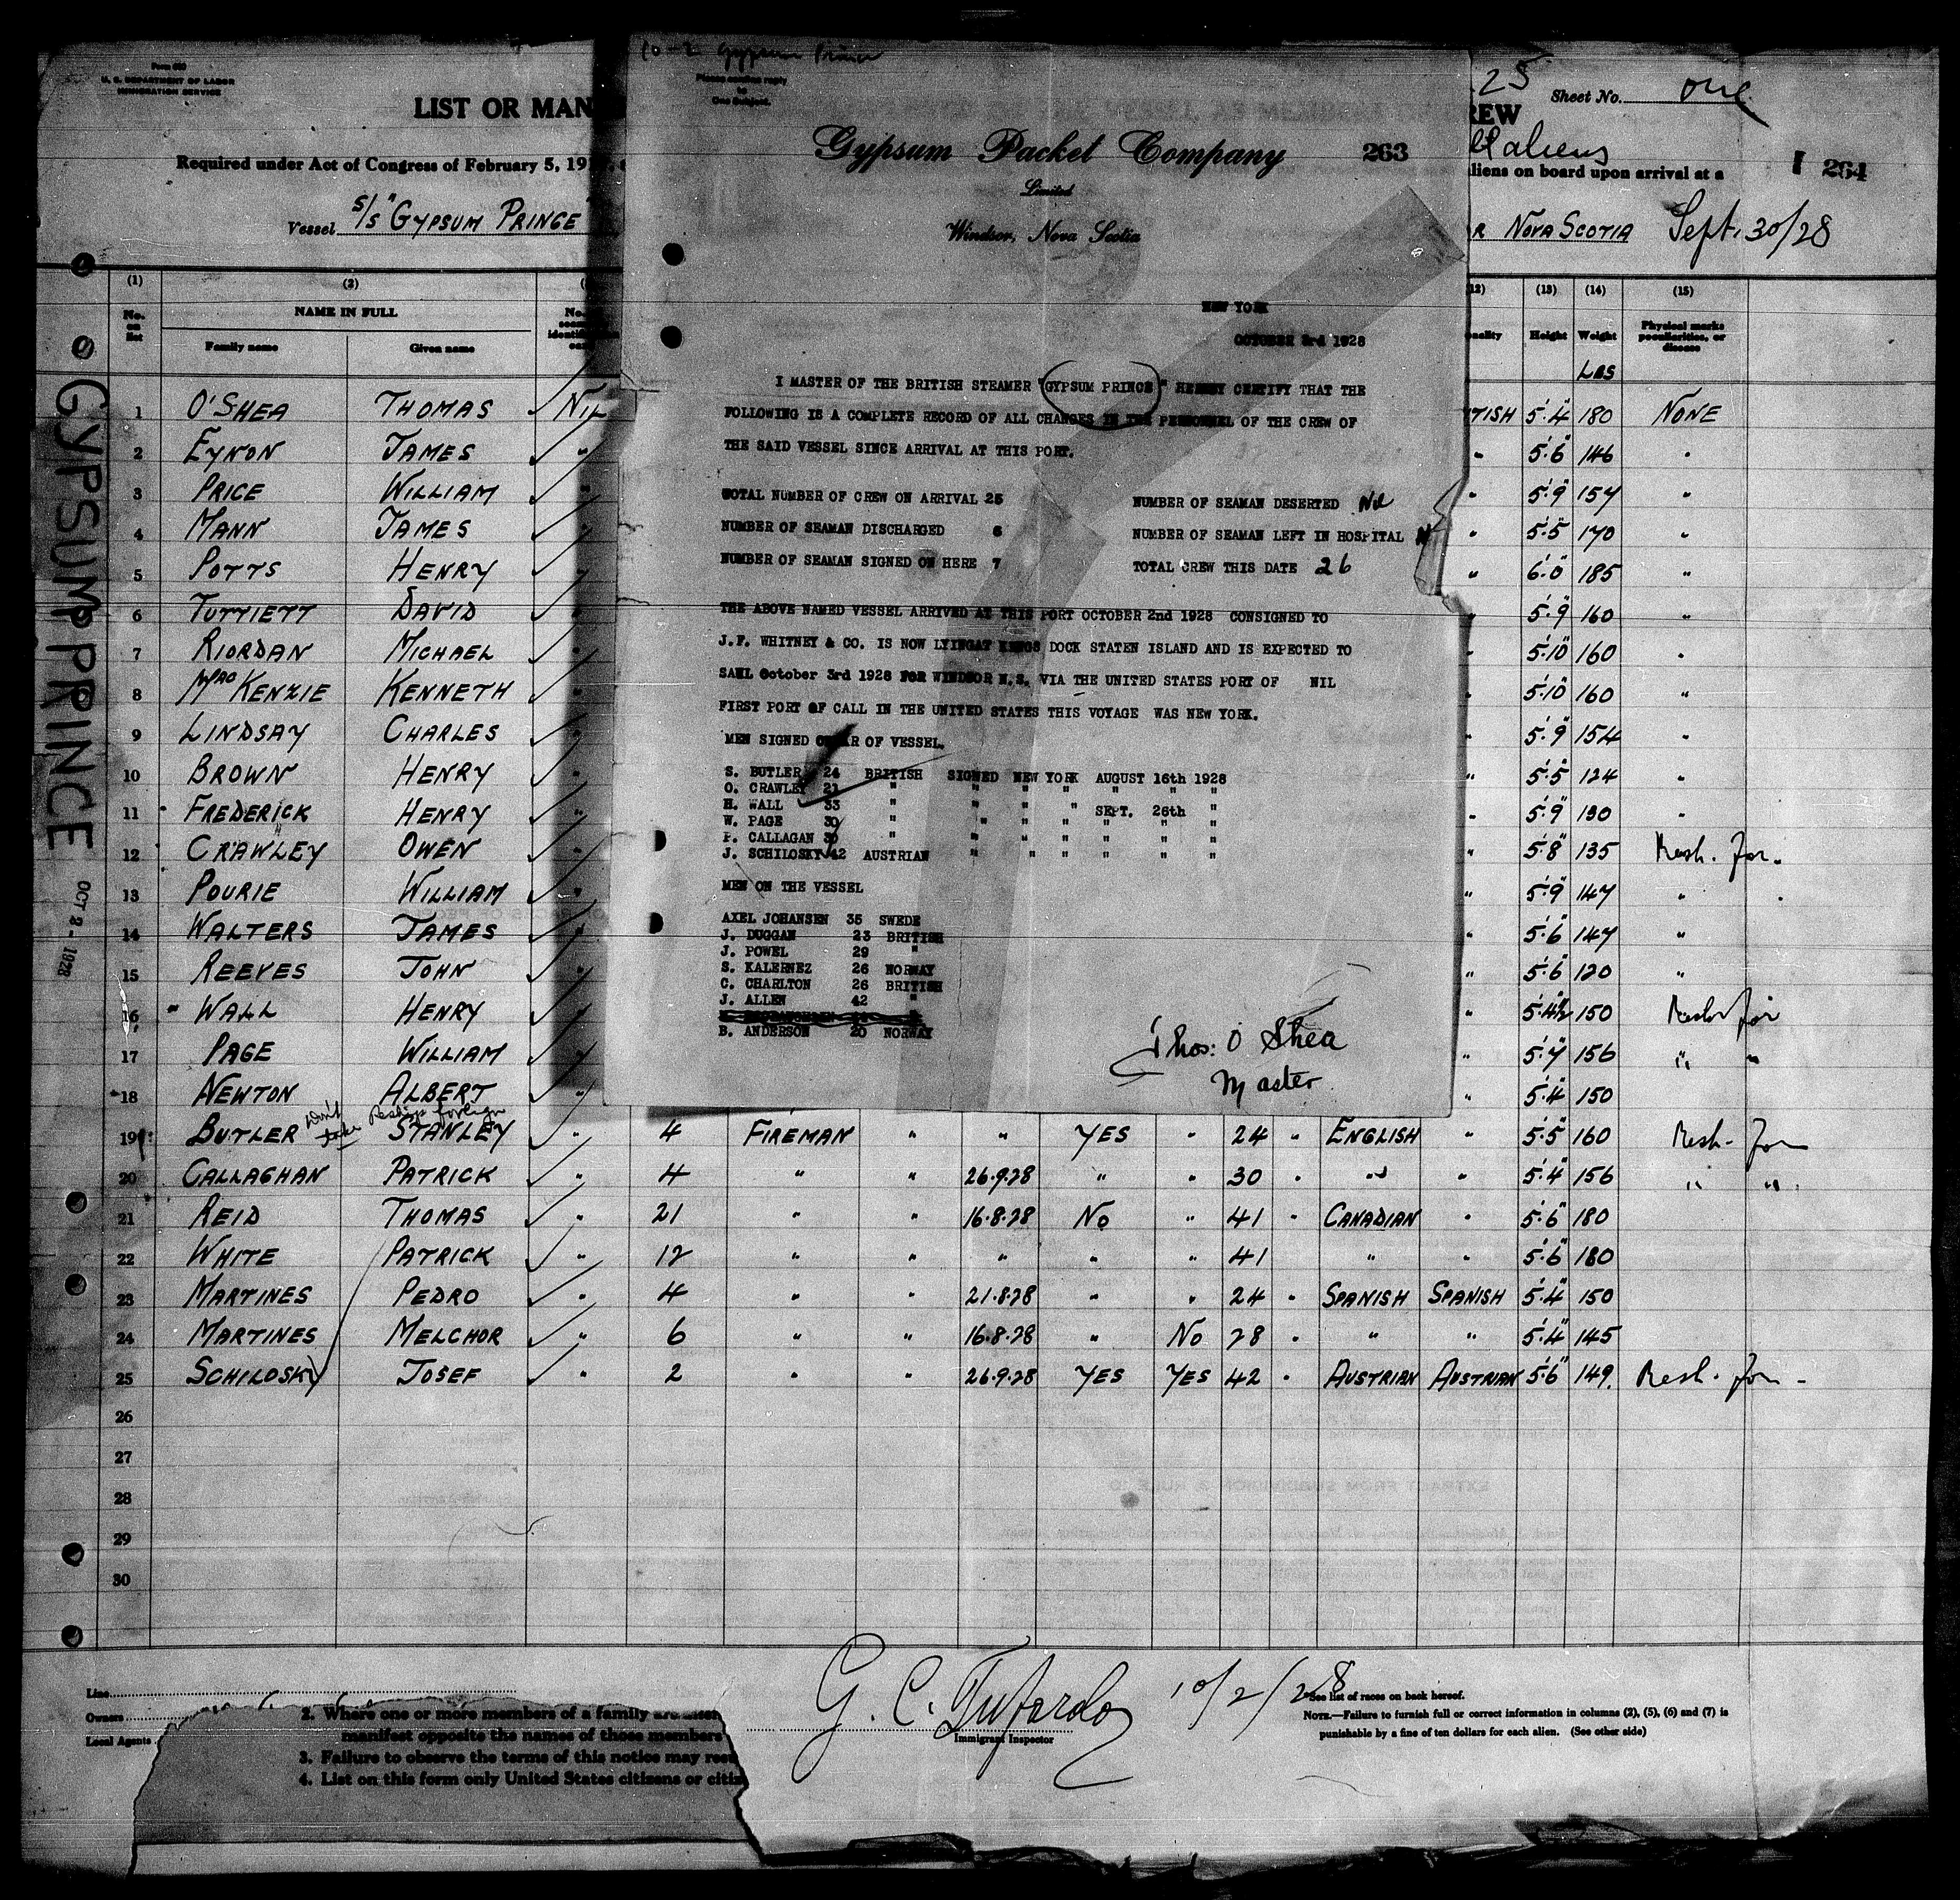 Form 680
U. S. DEPARTMENT OF LABOR
IMMIGRATION SERVICE
LIST OR MAN
Required under Act of Congress of February 5, 19
Vessel S/S "GYPSUM PRINCE"
10-2 Gypsum Prince
Please confine reply
to
One Subject.
Gypsum Packet Company 263
Limited
Windsor, Nova Scotia
NEW YORK
OCTOBER 3rd 1928
I MASTER OF THE BRITISH STEAMER "GYPSUM PRINCE" HEREBY CERTIFY THAT THE
FOLLOWING IS A COMPLETE RECORD OF ALL CHANGES IN THE PERSONNEL OF THE CREW OF
THE SAID VESSEL SINCE ARRIVAL AT THIS PORT.
TOTAL NUMBER OF CREW ON ARRIVAL 25 NUMBER OF SEAMAN DESERTED Nil
NUMBER OF SEAMAN DISCHARGED 6 NUMBER OF SEAMAN LEFT IN HOSPITAL N
NUMBER OF SEAMAN SIGNED ON HERE 7 TOTAL CREW THIS DATE 26
THE ABOVE NAMED VESSEL ARRIVED AT THIS PORT OCTOBER 2nd 1928 CONSIGNED TO
J.F. WHITNEY & CO. IS NOW LYINGAT KINGS DOCK STATEN ISLAND AND IS EXPECTED TO
SAIL October 3rd 1928 FOR WINDSOR N.S. VIA THE UNITED STATES PORT OF NIL
FIRST PORT OF CALL IN THE UNITED STATES THIS VOYAGE WAS NEW YORK.
MEN SIGNED OF VESSEL.
S. BUTLER 24 BRITISH SIGNED NEW YORK AUGUST 16th 1928
O. CRAWLEY 21 " " " " " " "
H. WALL 33 " " " " SEPT. 26th "
W. PAGE 30 " " " " " " "
P. CALLAGAN 30 " " " " " " "
J. SCHILOSKY 42 AUSTRIAN " " " " " "
MEN ON THE VESSEL
AXEL JOHANSEN 35 SWEDE
J. DUGGAN 23 BRITISH
J. POWEL 29 "
S. KALERNEZ 26 NORWAY
C. CHARLTON 26 BRITISH
J. ALLEN 42 "
B. ANDERSON 20 NORWAY
Thos: O Shea
Master
25 Sheet No. one
REW
aliens
liens on board upon arrival at a
264
R NOVA SCOTIA Sept. 30/28
(1) (2) (12) (13) (14) (15)
No. on list NAME IN FULL Height Weight Physical marks peculiarities, or disease
Family name Given name
Lbs
1 O'SHEA THOMAS NIL TISH 5'.4" 180 NONE
2 EYNON JAMES " " 5'.6" 146 "
3 PRICE WILLIAM " " 5'.9" 154 "
4 MANN JAMES " " 5'.5" 170 "
5 POTTS HENRY " " 6'.0" 185 "
6 TUTTIETT DAVID " " 5'.9" 160 "
7 RIORDAN MICHAEL " " 5'.10" 160 "
8 MacKENZIE KENNETH " " 5'.10" 160 "
9 LINDSAY CHARLES " " 5'.9" 154 "
10 BROWN HENRY " " 5'.5" 124 "
11 FREDERICK HENRY " " 5'.9" 130 "
12 CRAWLEY OWEN " " 5'.8" 135 Resh. for.
13 POURIE WILLIAM " " 5'.9" 147 "
14 WALTERS JAMES " " 5'.6" 147 "
15 REEVES JOHN " " 5'.6" 120 "
16 WALL HENRY " " 5'.4½" 150 Resh for
17 PAGE WILLIAM " " 5'.7" 156 " "
18 NEWTON ALBERT " " 5'.4" 150
Don't take Reship foreign
19 BUTLER STANLEY " 4 FIREMAN " " YES " 24 " ENGLISH " 5'.5" 160 Resh. for
20 CALLAGHAN PATRICK " 4 " " 26.9.28 " " 30 " " " 5'.4" 156 " "
21 REID THOMAS " 21 " " 16.8.28 NO " 41 " CANADIAN " 5'.6" 180
22 WHITE PATRICK " 12 " " " " " 41 " " 5'.6" 180
23 MARTINES PEDRO " 4 " " 21.8.28 " " 24 " SPANISH SPANISH 5'.4" 150
24 MARTINES MELCHOR " 6 " " 16.8.28 " NO 28 " " " 5'.4" 145
25 SCHILOSKY JOSEF " 2 " " 26.9.28 YES YES 42 " AUSTRIAN AUSTRIAN 5'.6" 149. Resh. for -
26
27
28
29
30
GYPSUM PRINCE
OCT 2 - 1928
Line
Owners
Local Agents
2. Where one or more members of a family are
manifest opposite the names of those members
3. Failure to observe the terms of this notice may
4. List on this form only United States citizens or
G. C. Tufardo 10/2/28
Immigrant Inspector
See list of races on back hereof.
NOTE.—Failure to furnish full or correct information in columns (2), (5), (6) and (7) is
punishable by a fine of ten dollars for each alien. (See other side)